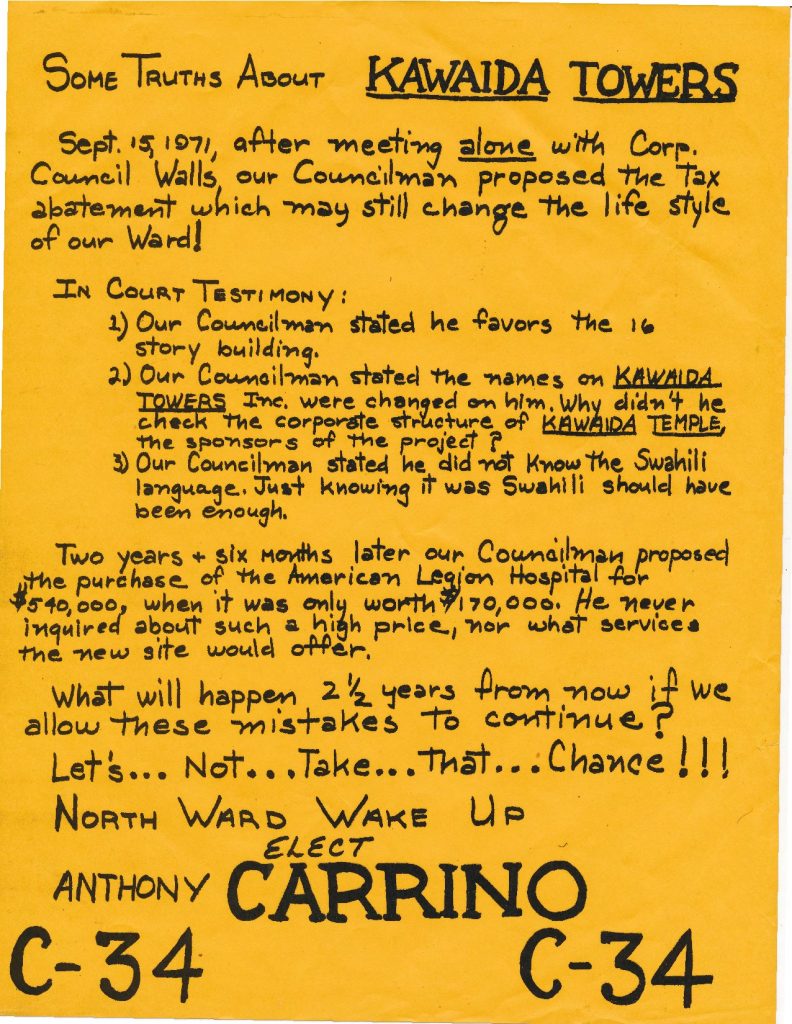 SOME TRUTHS ABOUT KAWAIDA TOWERS
Sept. 15, 1971, after meeting alone with Corp.
Council Walls, our Councilman proposed the Tax
abatement which may still change the life style
of our Ward!
IN COURT TESTIMONY:
1) Our Councilman stated he favors the 16
story building.
2) Our Councilman stated the names on KAWAIDA
TOWERS Inc. were changed on him. Why didn't he
check the corporate structure of KAWAIDA TEMPLE,
the sponsors of the project?
3) Our Councilman stated he did not know the Swahili
language. Just knowing it was Swahili should have
been enough.
Two years + six months later our Councilman proposed
the purchase of the American Legion Hospital for
$540,000, when it was only worth $170,000. He never
inquired about such a high price, nor what services
the new site would offer.
What will happen 2½ years from now if we
allow these mistakes to continue?
Let's... Not... Take... That... Chance!!!
NORTH WARD WAKE UP
ELECT
ANTHONY CARRINO
C-34 C-34